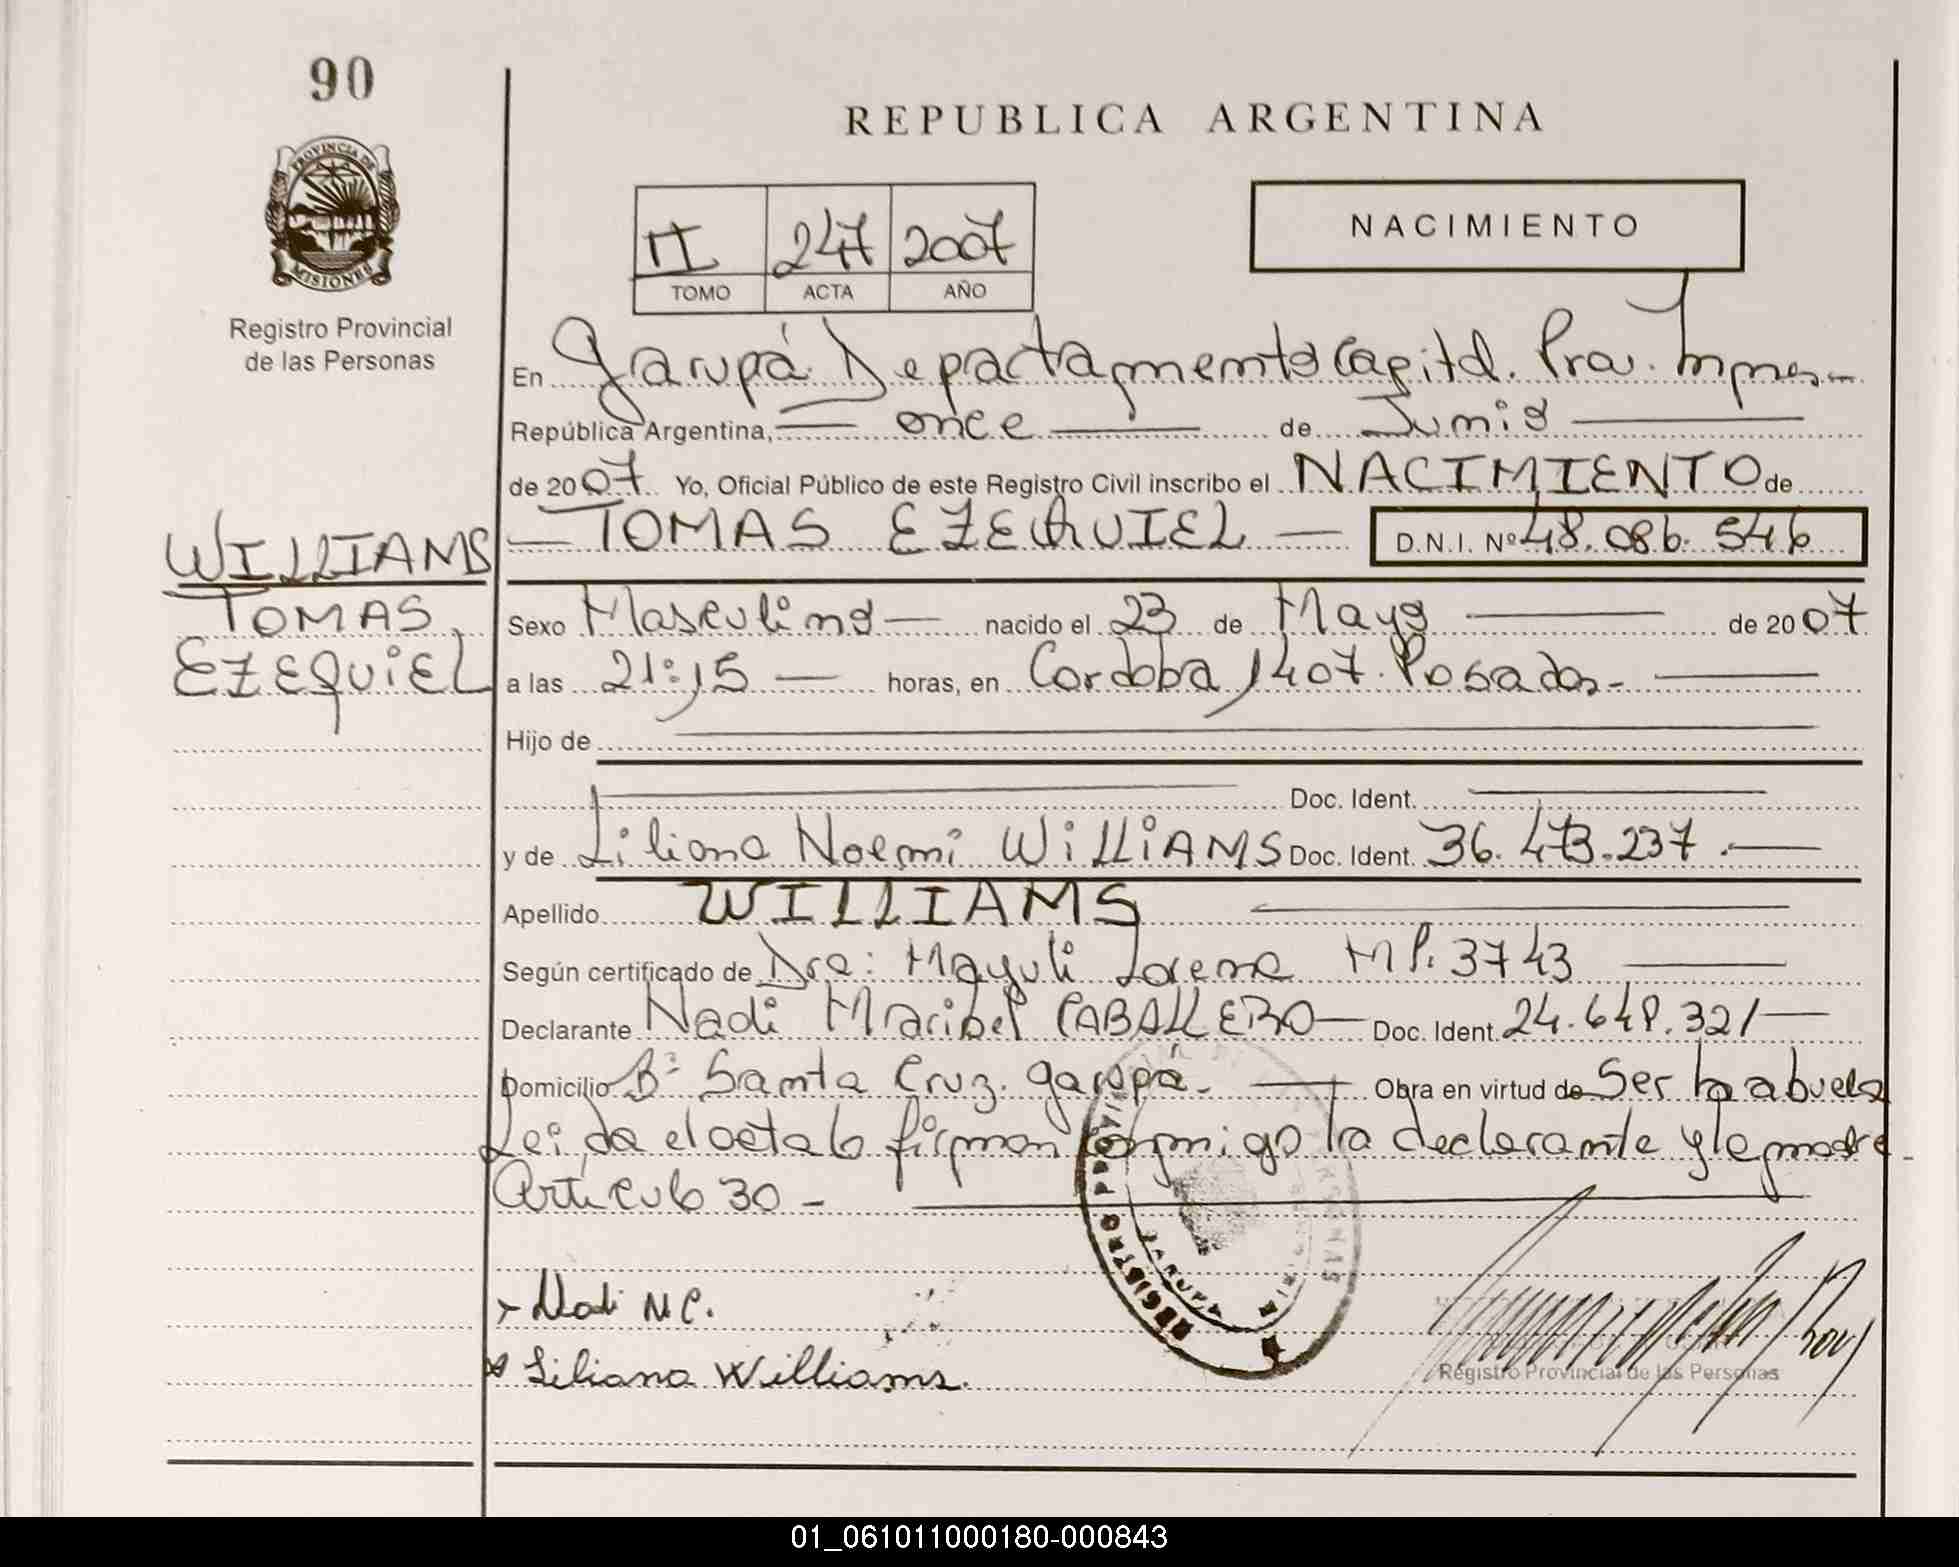 90
REPUBLICA ARGENTINA
PROVINCIA DE
MISIONES
Registro Provincial
de las Personas
II 247 2007
TOMO ACTA AÑO
NACIMIENTO
En Garupá Departamento Capital. Prov. Mnes.-
República Argentina, once de Junio
de 2007 Yo, Oficial Público de este Registro Civil inscribo el NACIMIENTO de
TOMAS EZEQUIEL D.N.I. Nº 48.086.546
WILLIAMS
TOMAS
EZEQUIEL
Sexo Masculino nacido el 23 de Mayo de 2007
a las 21:15 horas, en Cordoba 1407. Posadas.-
Hijo de
Doc. Ident.
y de Liliana Noemi WILLIAMS Doc. Ident. 36.473.237.
Apellido WILLIAMS
Según certificado de Dra: Mayuli Lorena MP. 3743
Declarante Nadi Maribel CABALLERO Doc. Ident. 24.648.321
Domicilio Bº Santa Cruz. Garupá. Obra en virtud de Ser la abuela
Leida el acta la firman conmigo la declarante y la madre
Articulo 30 -
Nadi M.C.
Liliana Williams.
REGISTRO GARUPA
Registro Provincial de las Personas
01_061011000180-000843